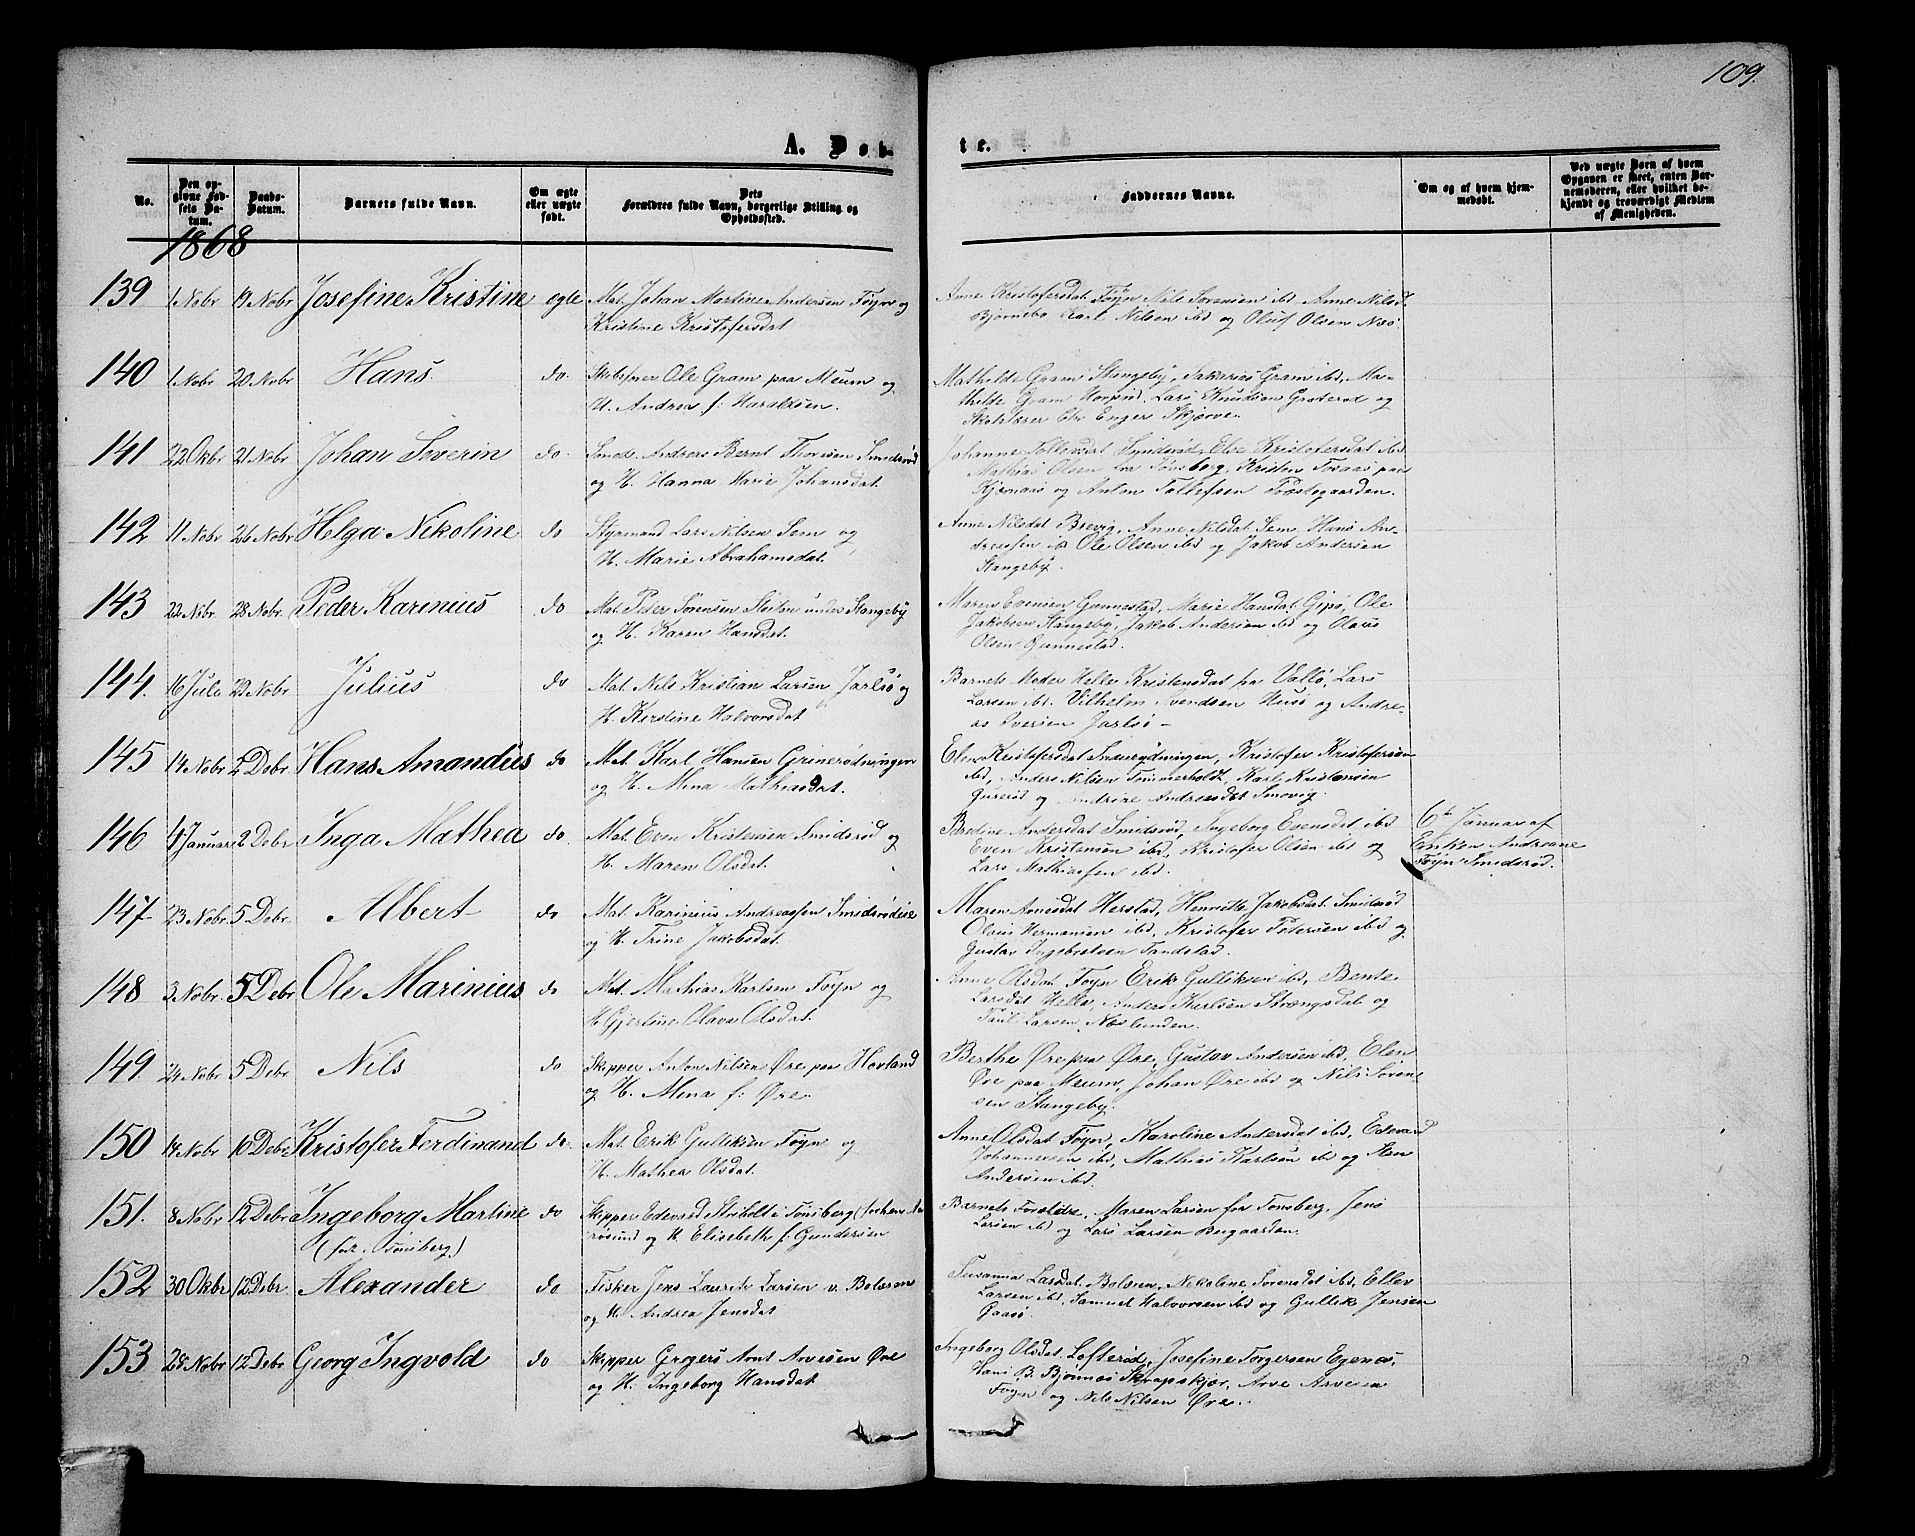 109.
A. Døb-
te.
No.
Den op-
givne Fød-
sels Da-
tum.
Daabs-
Datum.
Barnets fulde Navn.
Om ægte
eller uægte
født.
Dets
Forældres fulde Navn, borgerlige Stilling og
Opholdssted.
Faddernes Navne.
Om og af hvem hjem-
medøbt.
Ved uægte Børn af hvem
Opgaven er skeet, enten Bar-
nemoderen, eller hvilket be-
kjendt og troværdigt Medlem
af Menigheden.
1868
139 1 Nobr 19 Nobr Josefine Kristine egte Mat. Johan Martin Andersen Föyn og
Kristine Kristofersdat
Anne Kristofersdat Föyn Nils Sörensen ibd Anne Nilsd.
Björnebo Karl Nilsen ibd og Oluf Olsen Næs.
140 1 Nobr 20 Nobr Hans do. Skibsfører Ole Gram paa Meum og
H. Andrea f: Haraldsen.
Mathilde Gram Stangeby, Sakarias Gram ibd, Ma-
thilde Gram Lars Knudsen Groterød og
Skolelærer Chr Enger Skjerve.
141 22 Okbr 21 Nobr Johan Severin do. Smed Andreas Bernt Thorsen Smidsröd
og H. Hanna Marie Johansdat.
Johanne Tollevsdat Smidsröd, Else Kristofersdat ibd
Mathias Olsen fra Tönsberg, Kristen Foraas paa
Kjærnaas og Anton Tollefsen Præstegaarden.
142 11 Nobr 26 Nobr Helga Nikoline do Styrmand Lars Nilsen Sem og
H. Marie Abrahamsdat.
Anne Nilsdat Brevig, Anne Nilsdat Sem, Hans An-
dreassen ib Ole Olsen ibd og Jakob Andersen
Stangeby.
143 22 Nobr 28 Nobr Peder Karinius do Mat. Peter Sörensen Sloiten under Stangeby
og H. Karen Hansdat.
Maren Evensen Gunnestad, Marie Hansdat Gipö, Ole
Jakobsen Stangeby, Jakob Andersen ibd og Olaus
Olsen Gunnestad.
144. 16 Jule 29 Nobr Julius do Mat. Nils Kristian Larsen Jarlsö og
H. Kirstine Halvorsdat
Barnets Moder Helle Kristensdat fra Vallö, Lars
Larsen ibd. Vilhelm Svendsen Husö og Andre-
as Iversen Jarlsö –
145 14 Nobr 2 Debr Hans Amandus do Mat. Karl Hansen Grinerödningen
og H. Mina Mathiasdat.
Elen Kristofersdat Kristofer Kristofersen
ibd, Anders Nilsen Tömmerholdt, Karl Kristensen
og Andrine Andreasdat Smovig.
146 4 Januar 2 Debr Inga Mathea do. Mat. Even Kristensen Smidsröd og
H. Maren Olsdat.
Andersdat Smidsröd, Ingeborg Evensdat ibd
Even Kristensen ibd, Kristofer Olsen ibd og
Lars Mathiassen ibd.
6te Januar af
Enken Andreane
Föyn Smidsröd.
147 23 Nobr 5 Debr Albert do Mat. Karinius Andreassen Smidsrödeie
og H. Trine Jakobsdat.
Maren Arnesdat Herstad, Henriette Jakobsdat. Smidsröd
Olaus Hermansen ibd, Kristofer Petersen ibd og
Gustav Ingebretsen Tandstad.
148 3 Nobr. 5 Debr Ole Marinius do Mat. Mathias Karlsen Föyn og
H Gjertine Olava Olsdat.
Anne Olsdat Föyn Erik Gulliksen ibd, Bente
Larsdat Hella, Anders Karlsen Strengsdal og
Paul Larsen Næslunden.
149. 24 Nobr 5 Debr Nils do Skipper Anton Nilsen Øre paa Hovland
og H. Mina f: Øre.
Berthe Øre paa Øre, Gustav Andersen ibd, Elen
Øre paa Meum, Johan Øre ibd og Nils Soren-
sen Stangeby.
150 14 Nobr 10 Debr Kristofer Ferdinand do. Mat. Erik Gulliksen Föyn og
H. Mathea Olsdat.
Anne Olsdat Föyn, Karoline Andersdat ibd, Edevard
Johannessen ibd, Mathias Karlsen ibd og
Andersen ibd.
151. 8 Nobr 12 Debr Ingeborg Martine do Skipper Edevard Stobolt i Tönsberg
og H Elisebeth f. Gundersen
(för. i Tönsberg)
Barnets Forældre, Maren Larsen fra Tönsberg, Jens
Larsen ibd og Lars Larsen Burgaarden.
152 30 Okbr 12 Debr Alexander do Fisker Jens Laurits Larsen v. Bolæren
og H. Andrea Jensdat
Susanna Larsdat. Bolæren, Nikoline Sorensdat ibd, Ellev
Larsen ibd, Samuel Halvorsen ibd og Gullik Jensen
Gaasö.
153 28 Nobr 12 Debr Georg Ingvold do Skipper Gregers Arnt Arvesen Øre
og H. Ingeborg Hansdat
Ingeborg Olsdat. Lofteröd, Josefine Torgersen Egenes,
Hans B. Björnæs Skrapskjær, Arve Arvesen
Föyn og Nils Nilsen Øre.